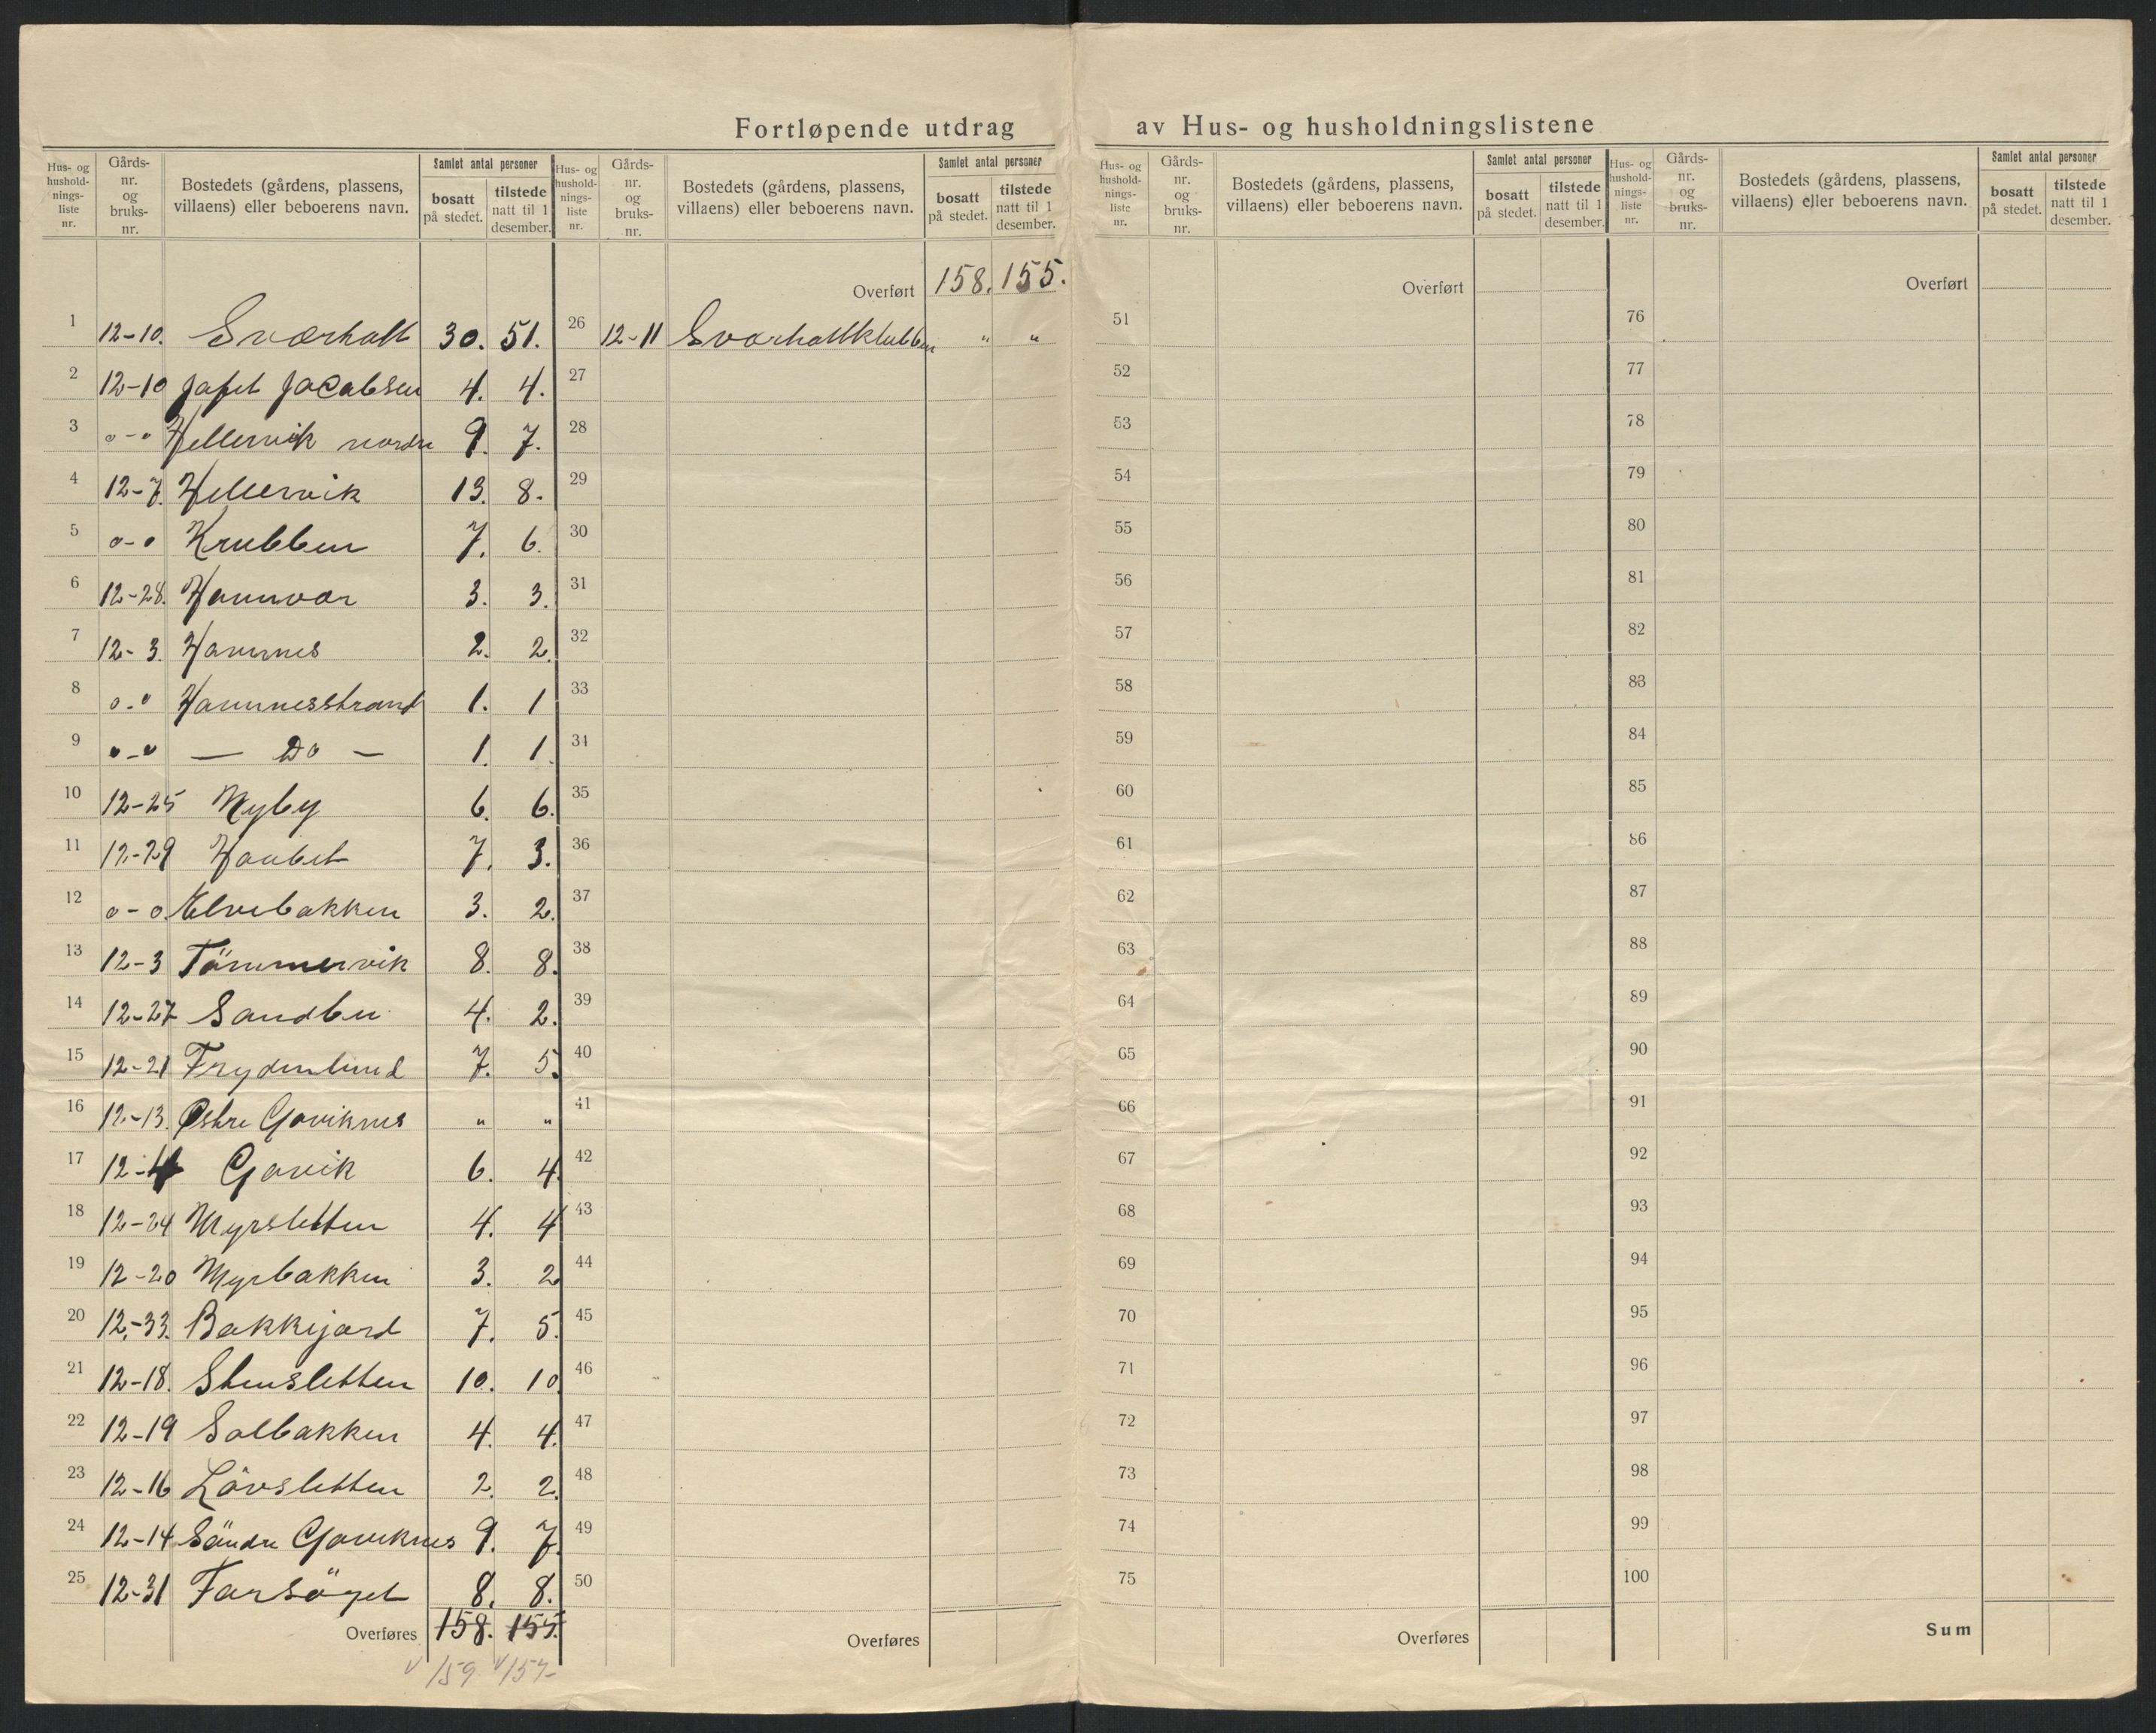 Fortløpende utdrag av Hus- og husholdningslistene
Hus- og hushold-nings-liste nr. Gårds-nr. og bruks-nr. Bostedets (gårdens, plassens, villaens) eller beboerens navn. Samlet antal personer bosatt på stedet. tilstede natt til 1 desember.
1 12-10. Sværholt 30. 51.
2 12-10 Jafet Jacobsen 4. 4.
3 o-o Hellervik nordre 9. 7.
4 12-7. Hellervik 13. 8.
5 o-o Krubben 7. 6.
6 12-28. Hamnvær 3. 3.
7 12-3. Hamnes 2. 2.
8 o-o Hamnesstrand 1. 1
9 o-o — Do — 1. 1.
10 12-25 Myby 6. 6.
11 12-29 Haabet 7. 3.
12 o-o. Elvebakken 3. 2.
13 12-3 Tömmervik 8. 8.
14 12-27 Sandbu 4. 2.
15 12-21 Frydenlund 7. 5.
16 12-13. Østre Gaviknes " "
17 12-4 Gavik 6. 4.
18 12-24 Myrsletten 4. 4
19 12-20 Myrbakken 3. 2
20 12-33. Bakkejord 7. 5.
21 12-18. Stensletten 10. 10.
22 12-19 Solbakken 4. 4.
23 12-16 Lövsletten 2. 2.
24 12-14 Söndre Gaviknes 9. 7.
25 12-31 Forsöget 8. 8.
Overføres 158. 155.
v 159 v 157
Hus- og hushold-nings-liste nr. Gårds-nr. og bruks-nr. Bostedets (gårdens, plassens, villaens) eller beboerens navn. Samlet antal personer bosatt på stedet. tilstede natt til 1 desember.
Overført 158. 155.
26 12-11 Sværholtklubben " "
27
28
29
30
31
32
33
34
35
36
37
38
39
40
41
42
43
44
45
46
47
48
49
50
Overføres
Hus- og hushold-nings-liste nr. Gårds-nr. og bruks-nr. Bostedets (gårdens, plassens, villaens) eller beboerens navn. Samlet antal personer bosatt på stedet. tilstede natt til 1 desember.
Overført
51
52
53
54
55
56
57
58
59
60
61
62
63
64
65
66
67
68
69
70
71
72
73
74
75
Overføres
Hus- og hushold-nings-liste nr. Gårds-nr. og bruks-nr. Bostedets (gårdens, plassens, villaens) eller beboerens navn. Samlet antal personer bosatt på stedet. tilstede natt til 1 desember.
Overført
76
77
78
79
80
81
82
83
84
85
86
87
88
89
90
91
92
93
94
95
96
97
98
99
100
Sum